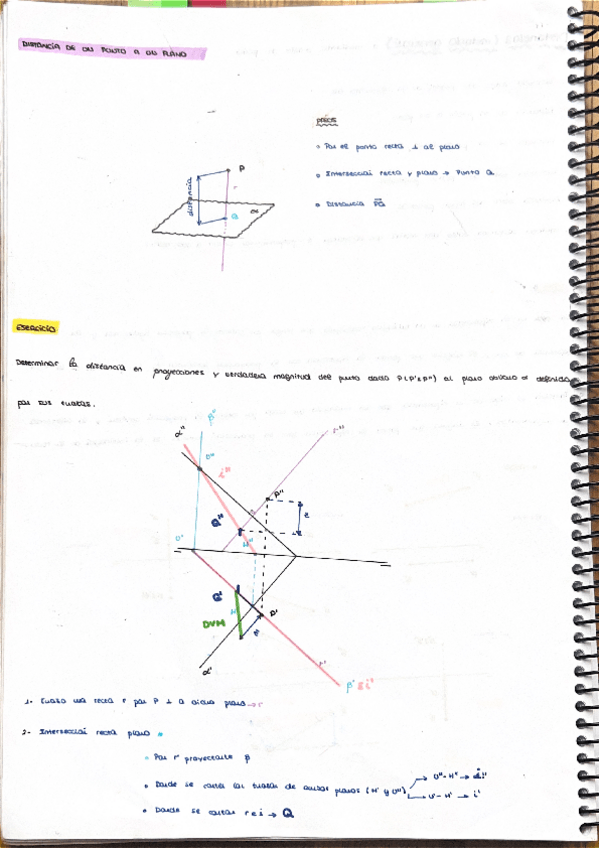 DISTANCIA DE UN PUNTO A UN PLANO
PASOS
Por el punto recta ⊥ al plano
Intersección recta y plano → Punto Q
Distancia PQ
P
r
distancia
α
Q
EJERCICIO
Determinar la distancia en proyecciones y verdadera magnitud del punto dado P(P'εP'') al plano oblicuo α definida
por sus trazas.
α''
β''
r''
V''
i''
P''
Q''
z
H''
V'
Q'
H'
P'
DVM
z
r'
α'
β'≡i'
1- Trazo una recta r por P ⊥ a dicho plano → r
2- Intersección recta plano
Por r proyectante β
Donde se cortan las trazas de ambos planos (H' y V'')
V''-H'' → i''
V'-H' → i'
Donde se cortan r e i → Q